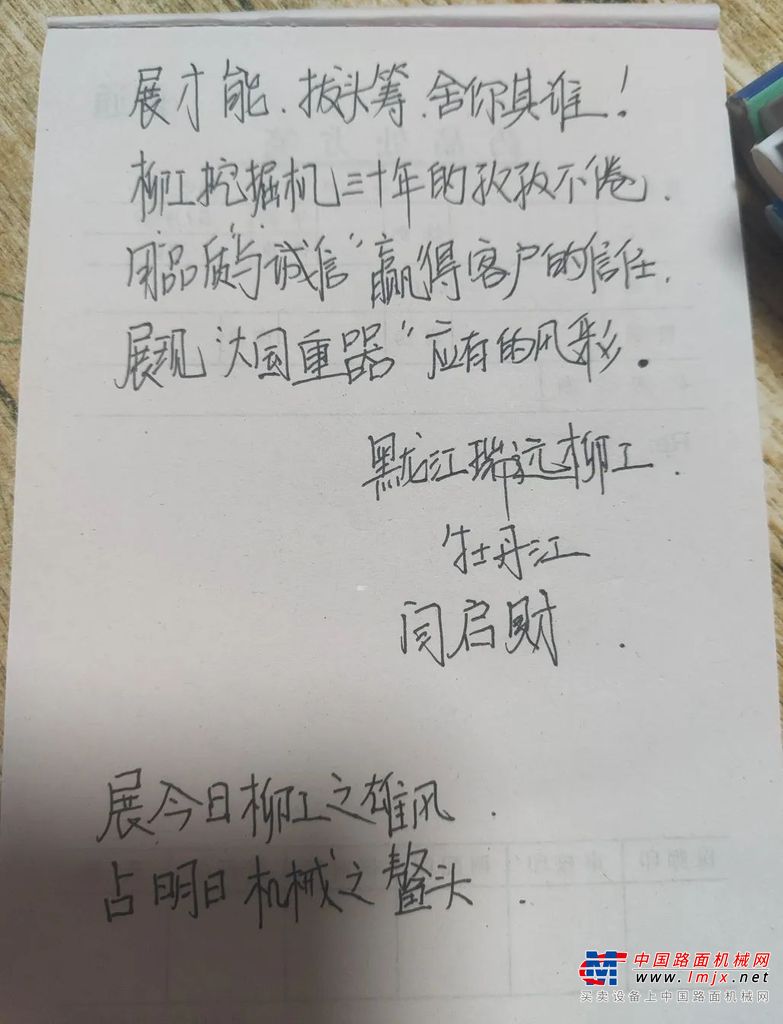 展才能、拔头筹、舍你其谁！
柳工挖掘机三十年的孜孜不倦．
用“品质与诚信”赢得客户的信任．
展现“大国重器”应有的风彩．
黑龙江瑞远柳工．
牡丹江
闫启财．
展今日柳工之雄风．
占明日机械之鳌头．
中国路面机械网
www.lmjx.net
买卖设备上中国路面机械网